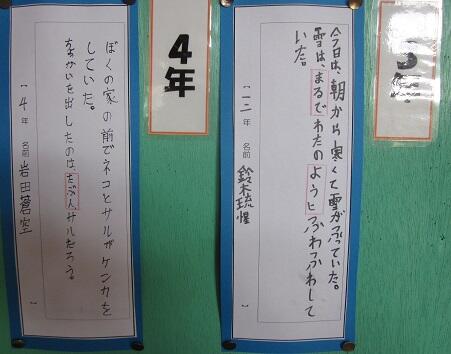 3年
今日は、朝から寒くて雪がふっていた。
雪は、まるでわたのようにふわふわして
いた。
【三年 名前 鈴木琉惺 】
4年
ぼくの家の前でネコとサルがケンカを
していた。
を出したのは、たぶんサルだろう。
【4年 名前 岩田蒼空 】